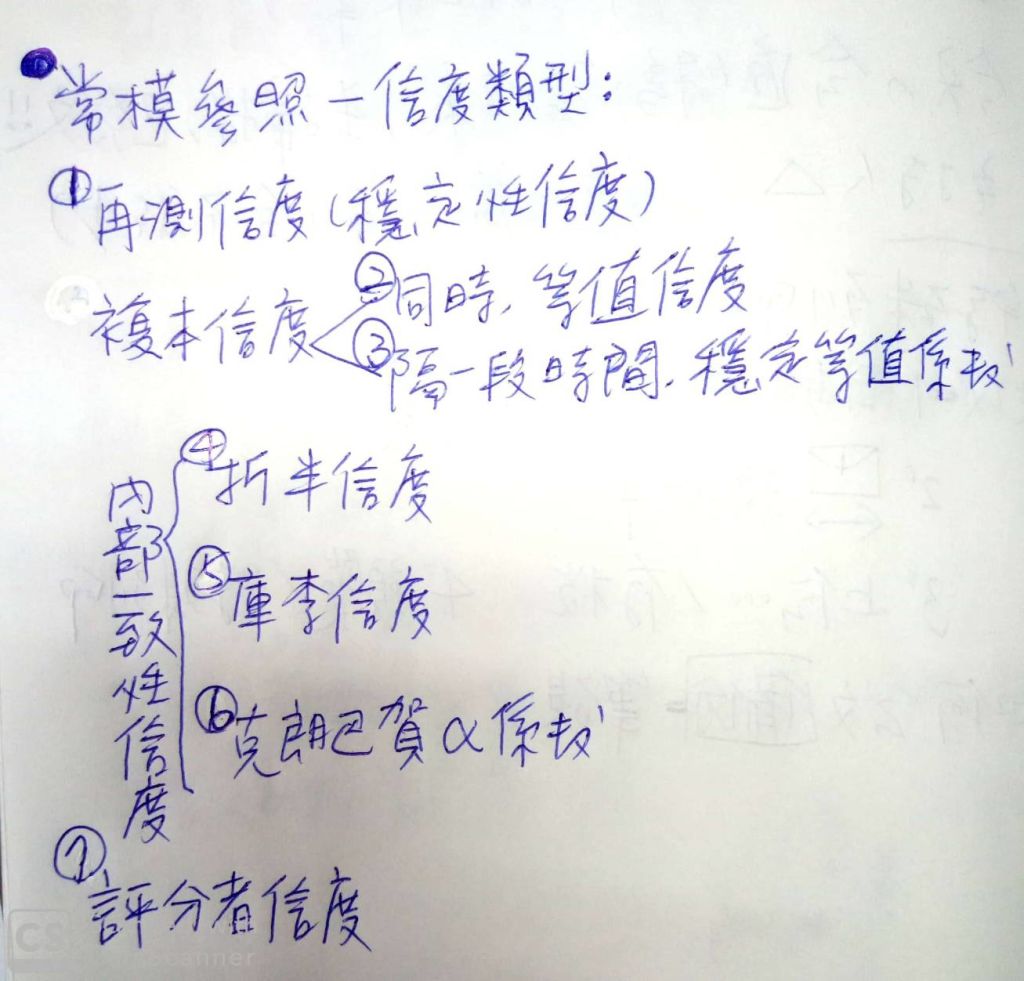 常模參照-信度類型:
①再測信度(穩定性信度)
複本信度
②同時, 等值信度
③隔一段時間, 穩定等值係数
內部一致性信度
④折半信度
⑤庫李信度
⑥克朗巴賀α係数
⑦評分者信度
CS